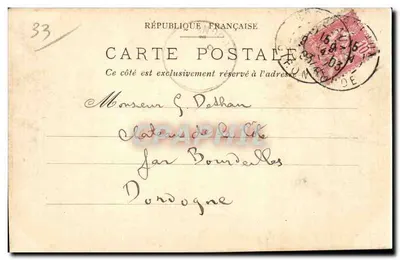 33
RÉPUBLIQUE FRANÇAISE
CARTE POSTALE
Ce côté est exclusivement réservé à l'adresse
Monsieur G. Dethan
de la Côte
par Bourdeilles
Dordogne